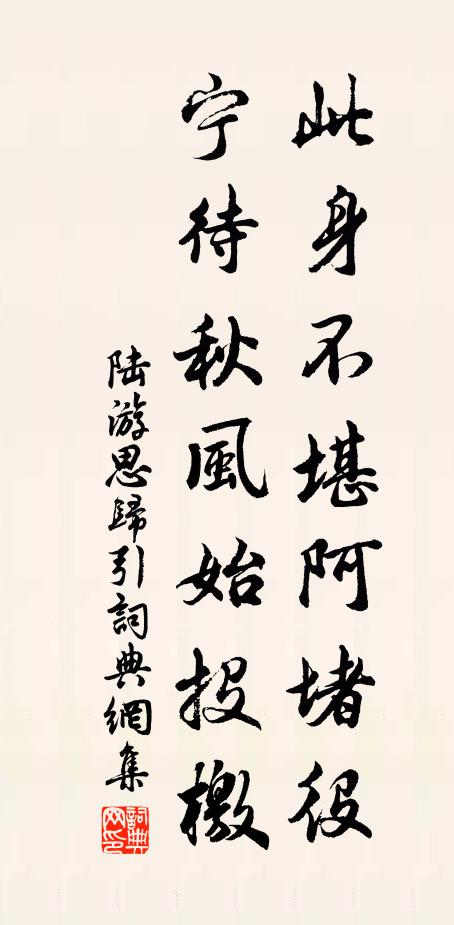 此身不堪阿堵役
宁待秋風始投檄
陆游思歸引詞典網集
詞典网印